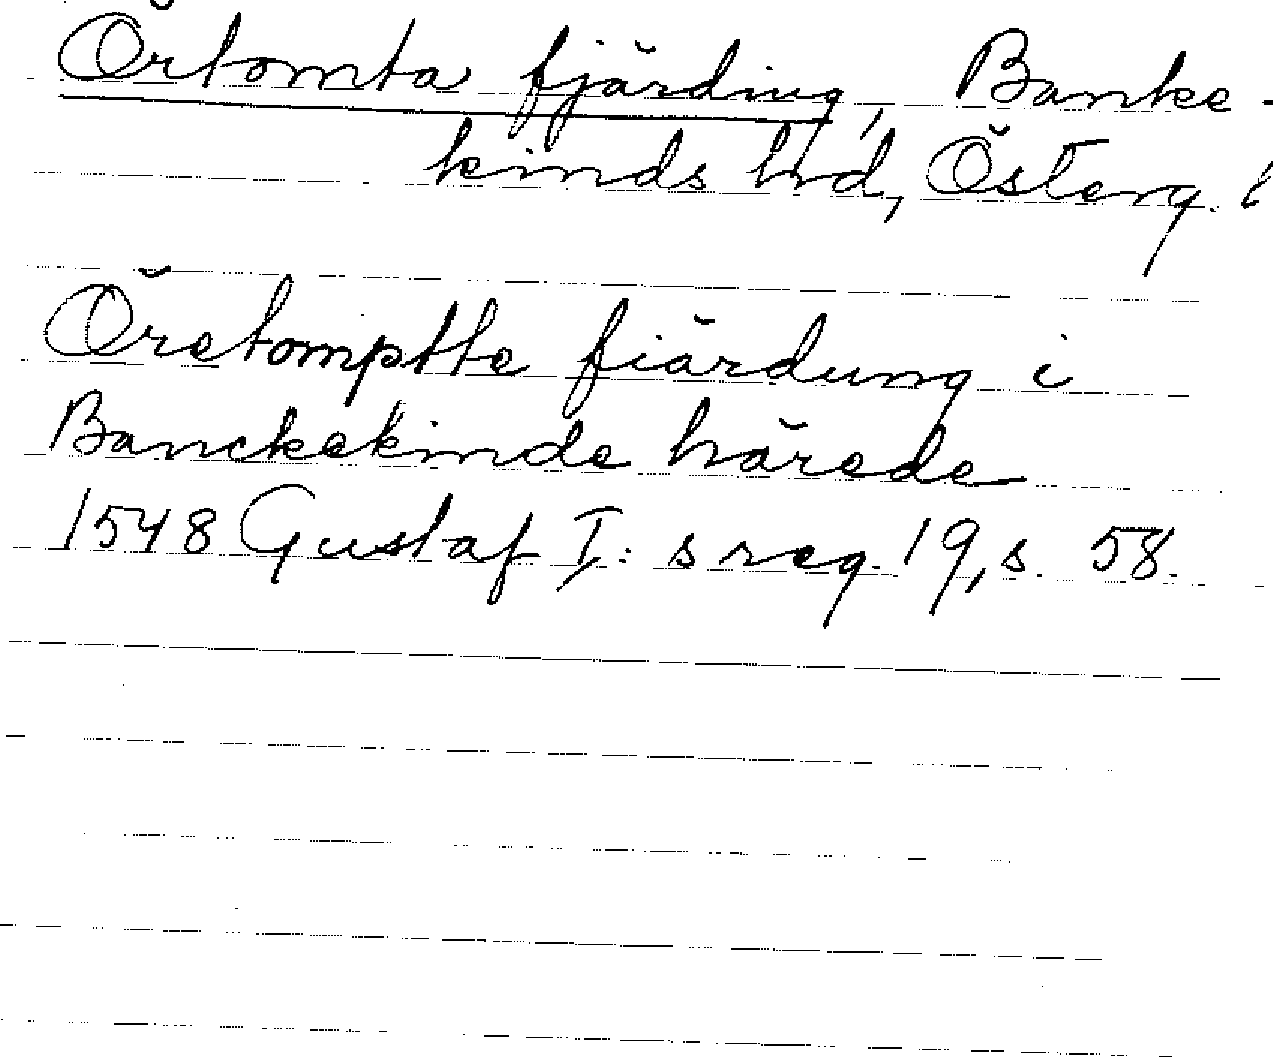 Örtomta fjärding, Banke-
kinds hrd, Österg. l
Öretomptte fiärdung i
Banckekinde härede
1548 Gustaf I:s reg. 19, s. 58.